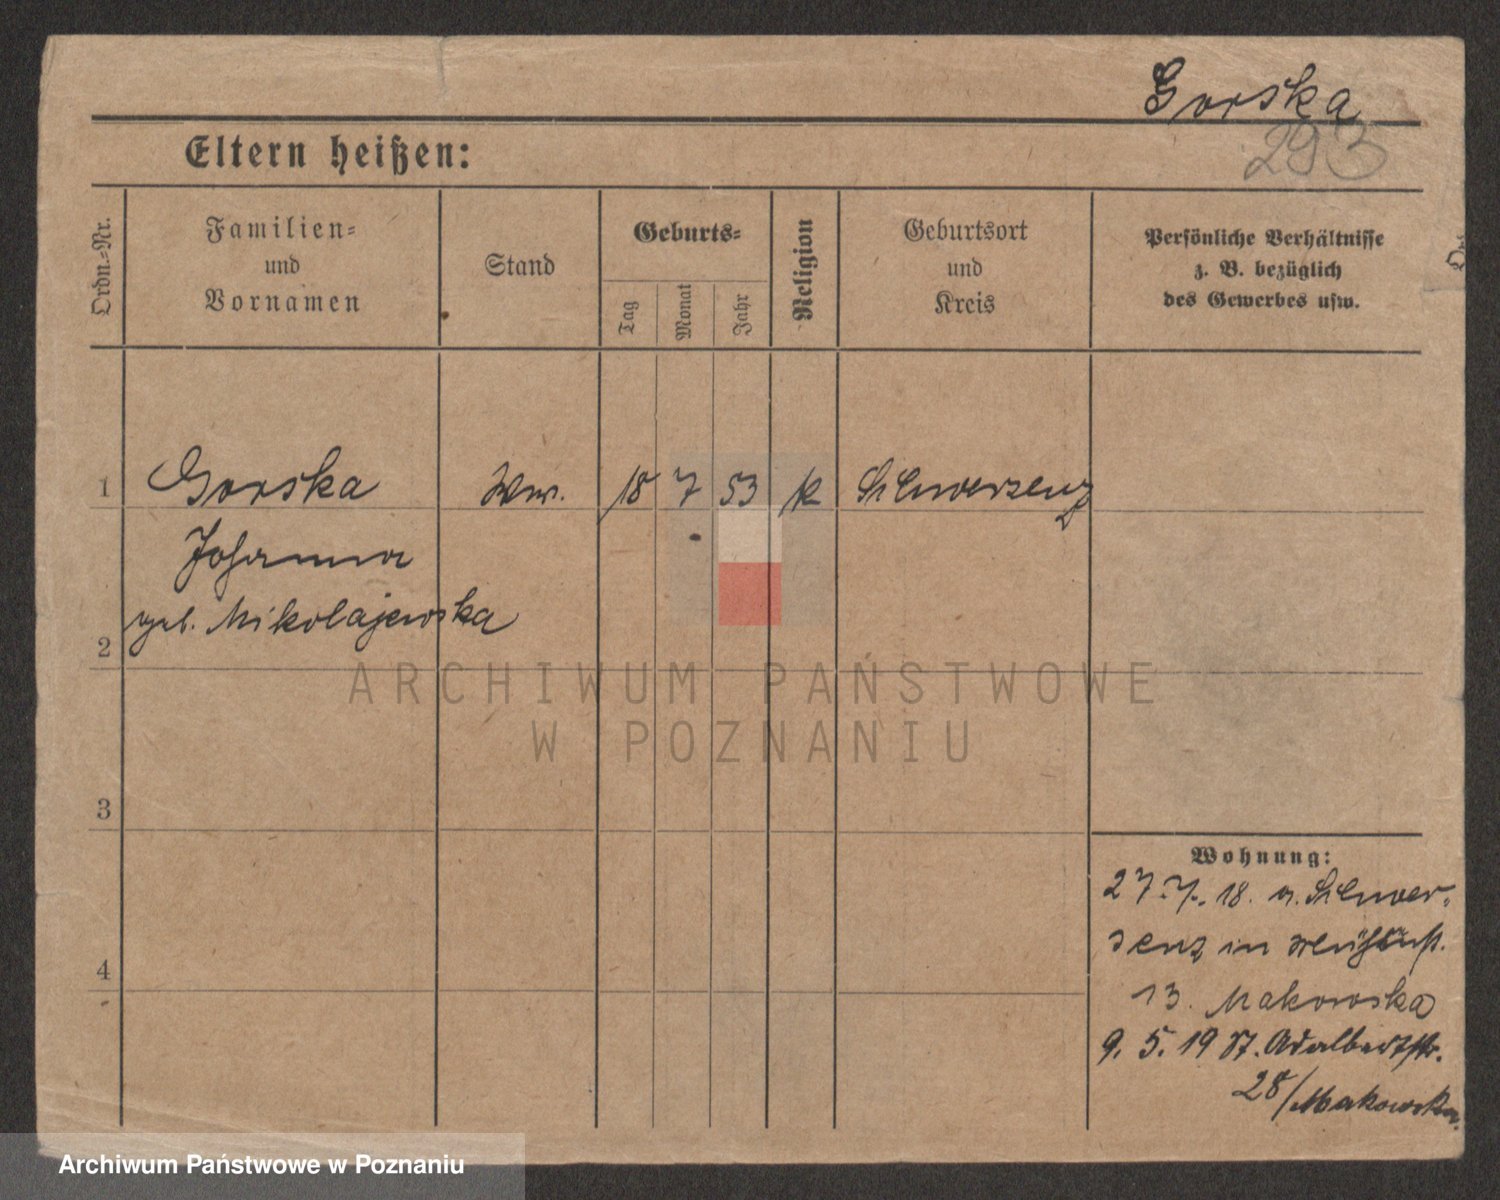 Gorska
293
Eltern heißen:
Ordn.-Nr.
Familien-
und
Vornamen
Stand
Geburts-
Tag
Monat
Jahr
Religion
Geburtsort
und
Kreis
Persönliche Verhältnisse
z. B. bezüglich
des Gewerbes usw.
1 Gorska Ww. 18 7 53 k Schwersenz
Johanna
geb. Mikolajewska
2
3
4
Wohnung:
27.7.18. a. Schwer-
senz in
13. Makowska
9. 5. 19 St. Adalbertstr.
28/Makowska
ARCHIWUM PAŃSTWOWE
W POZNANIU
Archiwum Państwowe w Poznaniu